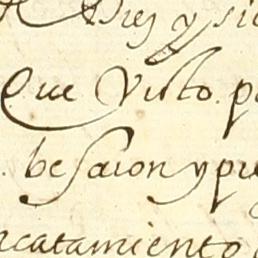 Diez y si
Que Visto. p
besaron y pu
catamiento